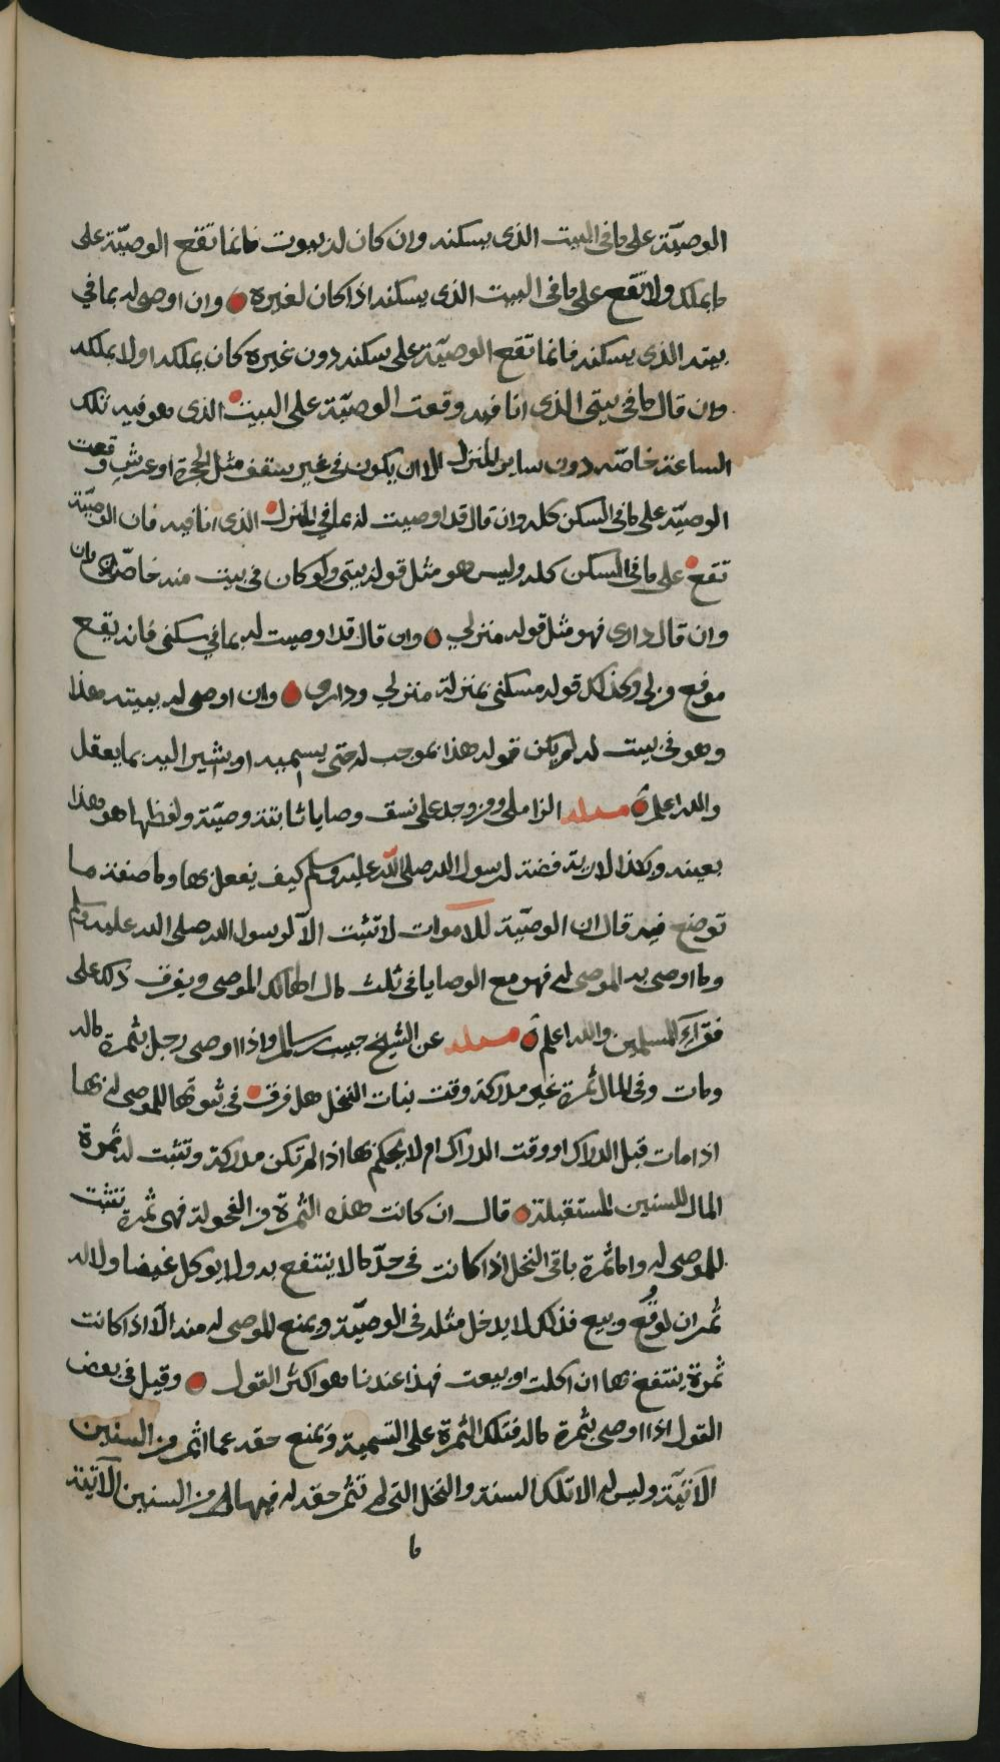 الوصيّة على ما في البيت الذى يسكنه وان كان له بيوت فانما تقع الوصيّة على
ما يملكه ولا تقع على ما فى البيت الذى يسكنه اذا كان لغيره وان اوصى له بما في
بيته الذى يسكنه فانما تقع الوصيّة على سكنه دون غيره كان يملكه او لا يملكه
وان قال ما في بيتي الذى انا فيه وقعت الوصيّة على البيت الذى هو فيه تلك
الساعة خاصّه دون ساير المنزل الا ان يكون في غير سقف مثل الحجرة او عرش وقعت
الوصيّة على ما في السكن كله وان قال قد اوصيت له بما في المنزل الذى انا فيه فان الوصيّة
تقع على ما في المسكن كله وليس هو مثل قوله بيتي ولو كان في بيت منه خاصّة وان
وان قال داري فهو مثل قوله منزلي وان قال قد اوصيت له بما في سكني فانه يقع
موقع وكذلك قوله مسكني بمنزلة منزلي وداري وان اوصى له ببيته هذا
وهو في بيت له لم يكن قوله هذا بموجب له حتى يسميه او يشير اليه بما يعقل
والله اعلم مسئله الزاملي ومن وجد على نسق وصايا ثابتة وصيّة ولفظها هو هذا
بعينه وكذا لارية فضة لرسول الله صلى الله عليه وسلم كيف يفعل بها وما صفة ما
توضع فيه قال ان الوصيّة للاموات لا تثبت الا لرسول الله صلى الله عليه وسلم
وما اوصى به الموصى له فهو مع الوصايا في ثلث مال الهالك الموصى ويفرق ذلك على
فقرآء المسلمين والله اعلم مسئله عن الشيخ حبيب بن سالم واذا اوصى رجل بثمرة ماله
ومات وفى المال ثمرة غير مدركة وقت نبات النخل هل فرق في ثبوتها للموصى له بها
اذا مات قبل الدراك او وقت الدراك ام لا يحكم بها اذا لم تكن مدركة وتثبت له ثمرة
المال للسنين المستقبلة قال ان كانت هذه الثمرة من الفحولة فهى ثمرة تثبت
للموصى له واما ثمرة باقى النخل اذا كانت في حدّ ما لا ينتفع به ولا يوكل غيضا ولا له
ثمر ان لو قع وبيع فذلك لا يدخل مثله فى الوصيّة ويمنع للموصى له منه الّا اذا كانت
ثمرة ينتفع بها ان اكلت او بيعت فهذا عندنا هو اكثر القول وقيل في بعض
القول اذا اوصى بثمرة ماله فتلك الثمرة على التسمية ويمنع حقه عما اثمر من السنين
الآتية وليس له الا تلك السنة والنخل التي لم تثمر حقه له فيها من السنين الآتية
ما